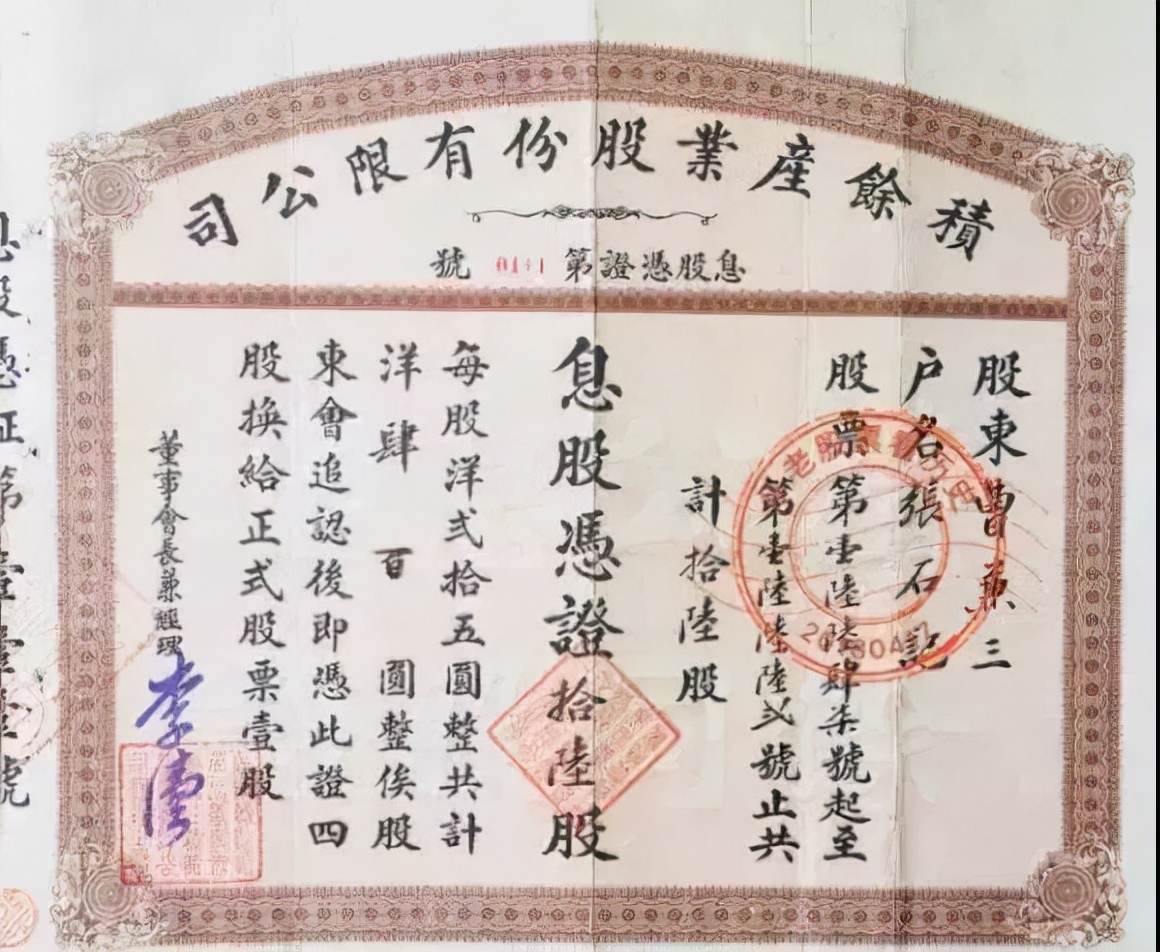 積餘產業股份有限公司
息股憑證第 號
股東曹鼎三
户名張石記
股票第壹陸陸肆柒號起至
第壹陸陸陸弍號止共
計拾陸股
息股憑證拾陸股
每股洋弍拾五圓整共計
洋肆百圓整俟股
東會追認後即憑此證四
股換給正式股票壹股
董事會長兼經理